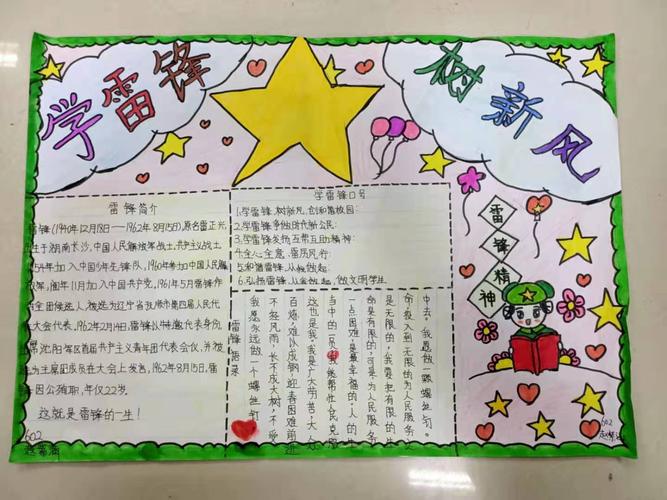 学雷锋
树新风
雷锋简介
雷锋(1940年12月18日——1962年8月15日),原名雷正兴,
生于湖南长沙,中国人民解放军战士,共产主义战士
54年加入中国少年先锋队,1960年参加中国人民解
放军,同年11月加入中国共产党,1961年5月雷锋作
候选人,被选为辽宁省抚顺市第四届人民代
表大会代表,1962年2月14日,雷锋以特邀代表身份
席沈阳军区首届共产主义青年团代表会议,并被
为主席团成员在大会上发言,1962年8月15日,雷
因公殉职,年仅22岁。
这就是雷锋的一生!
602
学雷锋口号
1.学雷锋,树新风,创和谐校园;
2.学雷锋争做时代新公民;
3.学雷锋发扬互帮互助精神;
4.全心全意,雷厉风行;
5.和谐雷锋,从我做起;
6.弘扬雷锋,从我做起,做文明学生
雷锋精神
中去。我愿做一颗螺丝钉。
命,投入到无限的为人民服务
是无限的,我要把有限的生
命是有限的,可是为人民服务
一点困难,是最幸福的。人的生
当中的一员,我能帮忙人民克服
这也是我,我是广大劳苦大众
百炼,难以成钢,迎着困难前进
不经风雨,长不成大树,不受
我愿永远做一个螺丝钉
雷锋语录
602